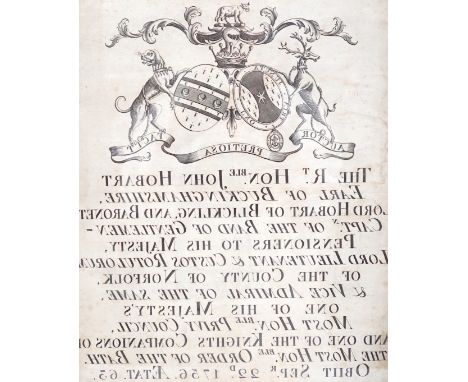 AUCTOR PRETIOSA FACIT
THE R.T HON.BLE JOHN HOBART
EARL OF BUCKINGHAMSHIRE,
LORD HOBART OF BLICKLING, AND BARONET
CAPT.N OF THE BAND OF GENTLEMEN-
PENSIONERS TO HIS MAJESTY,
LORD LIEUTENANT & CUSTOS ROTULORUM
OF THE COUNTY OF NORFOLK,
& VICE ADMIRAL OF THE SAME,
ONE OF HIS MAJESTY'S
MOST HON.BLE PRIVY COUNCIL,
AND ONE OF THE KNIGHTS COMPANIONS OF
THE MOST HON.BLE ORDER OF THE BATH.
OBIIT SEP.R 22.D 1756. ÆTAT. 63.